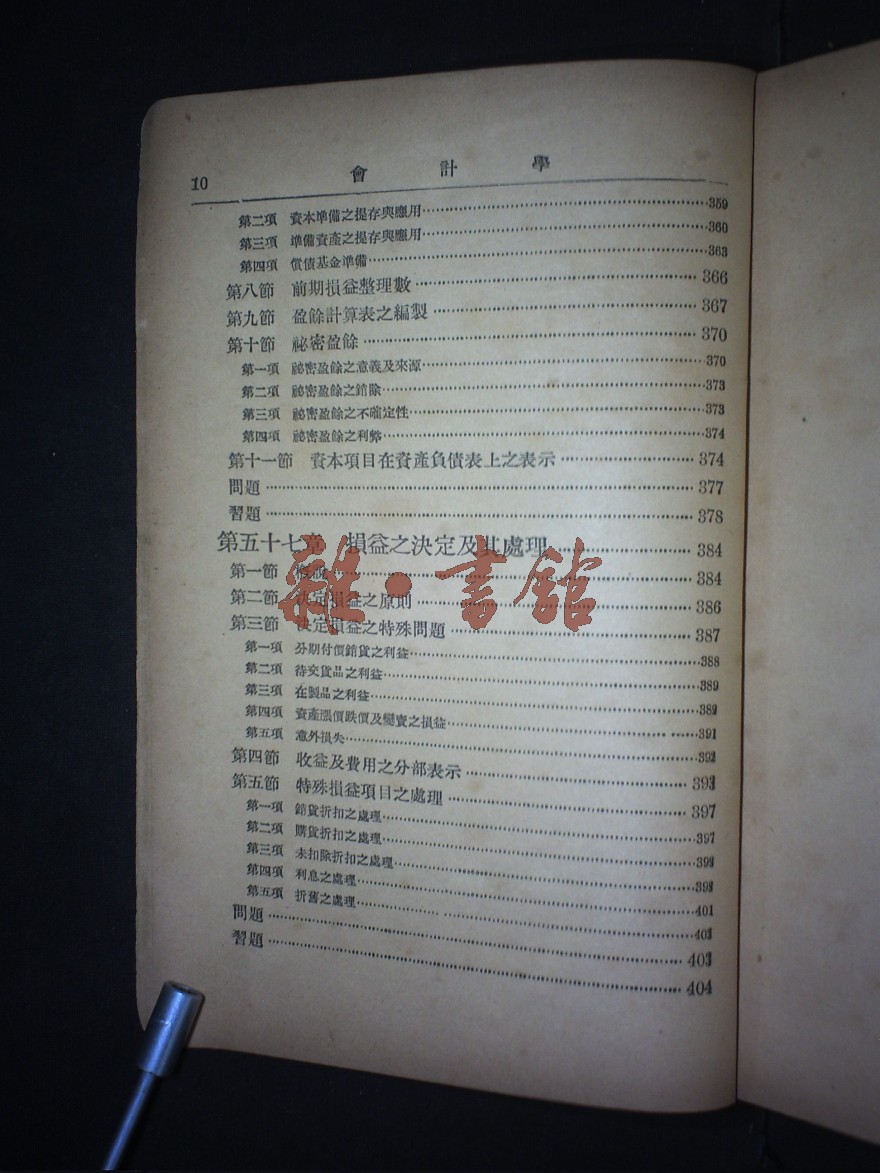 10 會計學
第二項 資本準備之提存與應用……359
第三項 準備資產之提存與應用……360
第四項 償債基金準備……363
第八節 前期損益整理數……366
第九節 盈餘計算表之編製……367
第十節 祕密盈餘……370
第一項 祕密盈餘之意義及來源……370
第二項 祕密盈餘之銷除……373
第三項 祕密盈餘之不確定性……373
第四項 祕密盈餘之利弊……374
第十一節 資本項目在資產負債表上之表示……374
問題……377
習題……378
第五十七章 損益之決定及其處理……384
第一節 概說……384
第二節 決定損益之原則……386
第三節 決定損益之特殊問題……387
第一項 分期付價銷貨之利益……388
第二項 待交貨品之利益……389
第三項 在製品之利益……389
第四項 資產漲價跌價及變賣之損益……391
第五項 意外損失……392
第四節 收益及費用之分部表示……393
第五節 特殊損益項目之處理……397
第一項 銷貨折扣之處理……397
第二項 購貨折扣之處理……
第三項 未扣除折扣之處理……
第四項 利息之處理……401
第五項 折舊之處理……
問題……403
習題……404
雜·書館